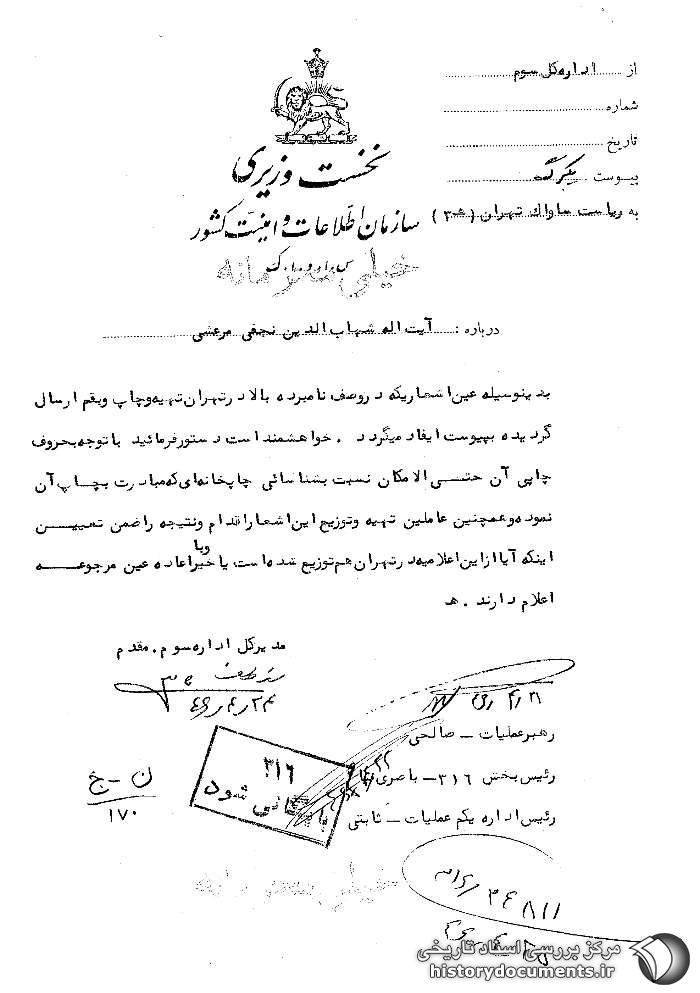 از اداره کل سوم
شماره
تاریخ
پیوست یکبرگ
به ریاست ساواک تهران (۳ه‍)
نخست وزیری
سازمان اطلاعات و امنیت کشور
خیلی محرمانه
درباره : آیت اله شهاب الدین نجفی مرعشی
بدینوسیله عین اشعاریکه در وصف نامبرده بالا در تهران تهیه و چاپ و بقم ارسال
گردیده بپیوست ایفاد میگردد . خواهشمند است دستور فرمائید با توجه بحروف
چاپی آن حتی الامکان نسبت بشناسائی چاپخانه ای که مبادرت بچاپ آن
نموده و همچنین عاملین تهیه و توزیع این اشعار اقدام و نتیجه را ضمن تعیین
اینکه آیا از این اعلامیه در تهران هم توزیع شده است یا خیر و با اعاده عین مرجوعه
اعلام دارند . ه‍
مدیرکل اداره سوم . مقدم
۴۹/۴/۲۴
۴۹/۴/۲۱
رهبر عملیات - صالحی
رئیس بخش ۳۱۶ - باصری نیا
رئیس اداره یکم عملیات - ثابتی
۳۱۶
بایگانی شود
ن - خ
۱۷۰
خیلی محرمانه
مرکز بررسی اسناد تاریخی
historydocuments.ir